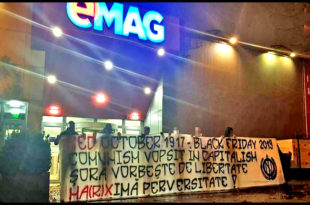 eMAG
RED OCTOBER 1917 - BLACK FRIDAY 2019
COMUNISM VOPSIT IN CAPITALISM
ȘORA VORBEȘTE DE LIBERTATE
MA(R)XIMĂ PERVERSITATE !